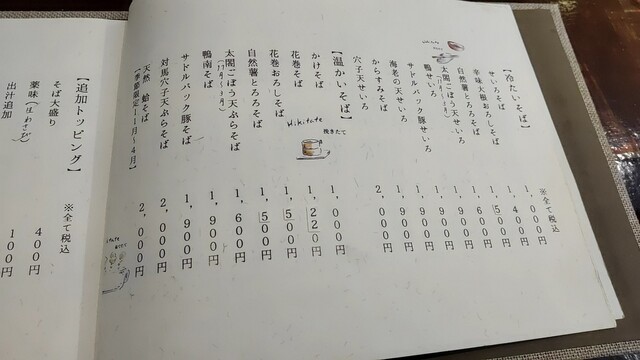 ※全て税込
【冷たいそば】
せいろそば 1,000円
辛味大根おろしそば 1,400円
自然薯とろろそば 1,500円
太閤ごぼう天せいろ 1,600円
鴨せいろ 1,900円
サドルバック豚せいろ 1,900円
海老の天せいろ 1,900円
からすみそば 1,900円
穴子天せいろ 2,000円
【温かいそば】
Hikitate
挽きたて
かけそば 1,000円
花巻そば 1,220円
花巻おろしそば 1,500円
自然薯とろろそば 1,500円
太閤ごぼう天ぷらそば 1,600円
(11月〜3月)
鴨南そば 1,900円
サドルバック豚そば 1,900円
対馬穴子天ぷらそば 2,000円
天然 蛤そば 2,000円
【季節限定11月〜4月】
【追加トッピング】
※全て税込
そば大盛り 400円
薬味 100円
出汁追加